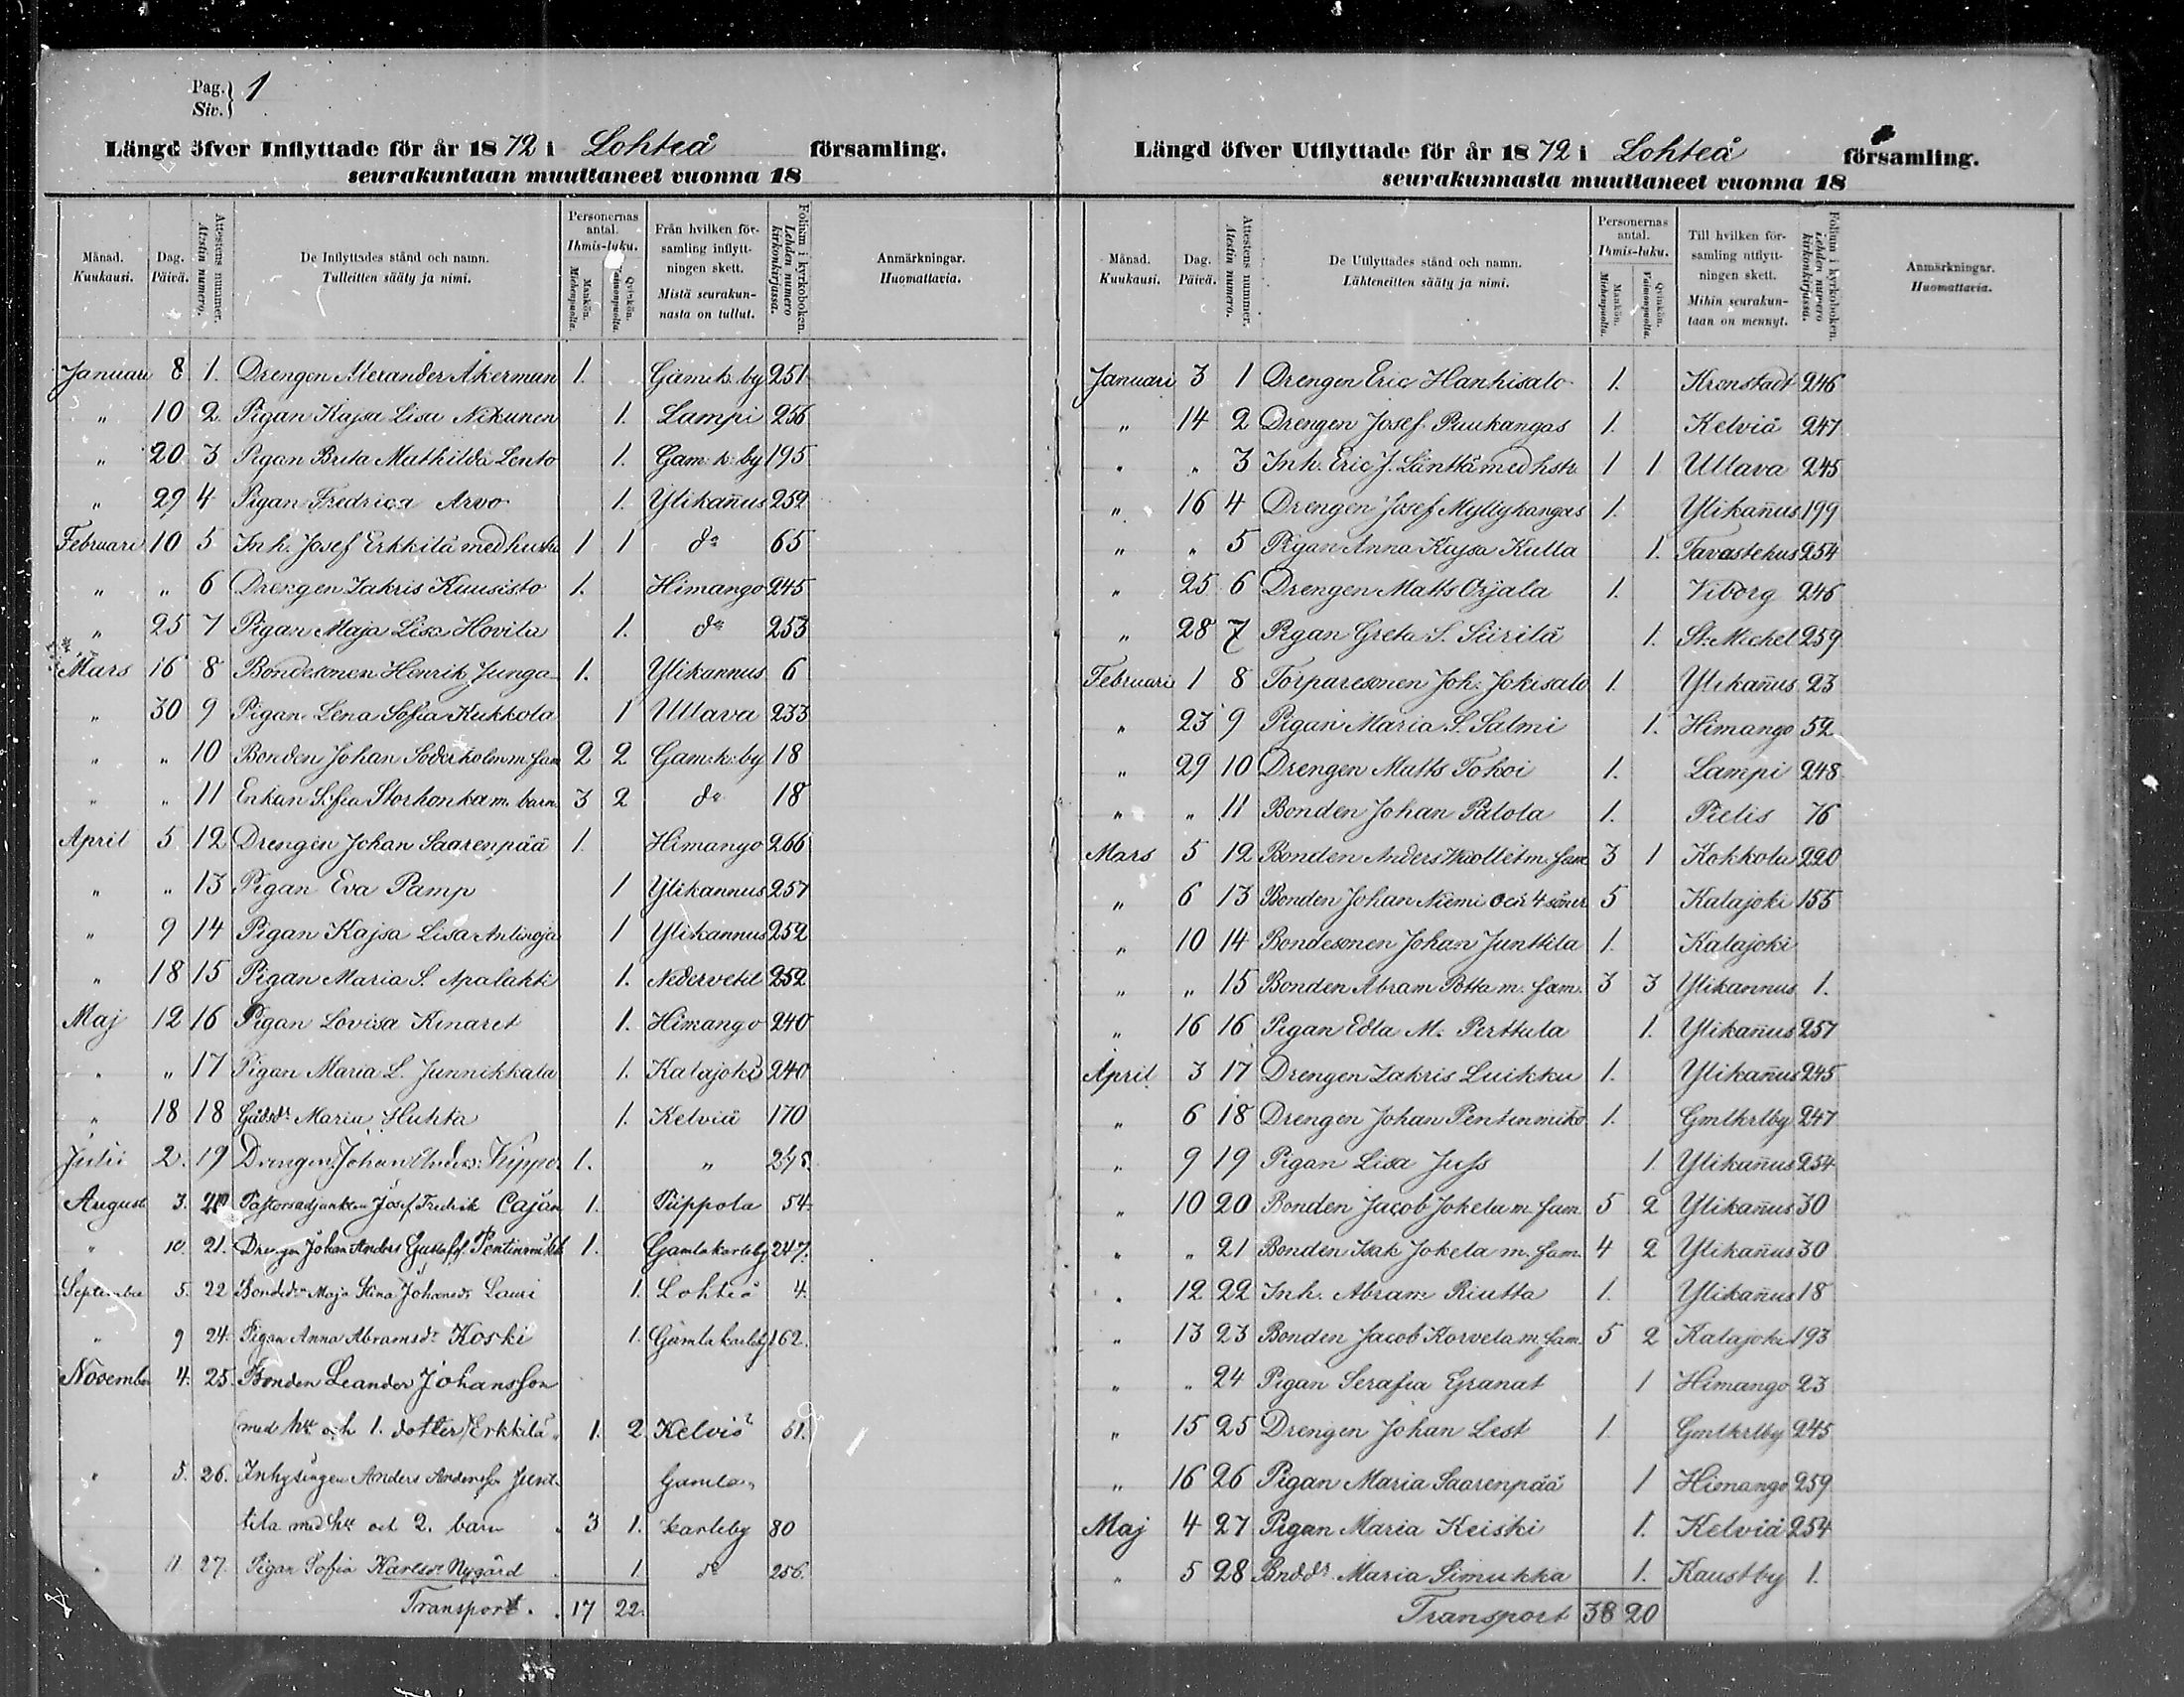 Pag. } 1
Siv. }
Längd öfver Inflyttade för år 1872 i Lohteå församling.
seurakuntaan muuttaneet vuonna 18
Månad. Kuukausi.
Dag. Päivä.
Attestens nummer. Atestin numero.
De Inflyttades stånd och namn. Tulleitten sääty ja nimi.
Personernas antal. Ihmis-luku.
Mankön. Miehenpuolia.
Qvinkön. Vaimonpuolia.
Från hvilken församling inflyttningen skett. Mistä seurakunnasta on tullut.
Folium i kyrkoboken. Lehden numero kirkonkirjassa.
Anmärkningar. Huomattavia.
Januari 8 1. Drengen Alexander Åkerman 1. Gam.k.by 251
" 10 2. Pigan Kajsa Lisa Nikunen 1. Lampi 256
" 20 3 Pigan Brita Mathilda Lento 1. Gam: k: by 195
" 29 4 Pigan Fredrica Arvo 1. Ylikan̄us 252
Februari 10 5 Inh. Josef Erkkilä med hustru 1 1 do 65
" " 6 Drengen Zakris Kuusisto 1. Himango 245
" 25 7 Pigan Maja Lisa Hovila 1. do 253
Mars 16 8 Bondesonen Henrik Junga 1. Ylikannus 6
" 30 9 Pigan Lena Sofia Kukkola 1 Ullava 233
" " 10 Bonden Johan Söderholm m. fam 2 2 Gam: k: by 18
" " 11 Enkan Sofia Storhonka m. barn 3 2 do 18
April 5 12 Drengen Johan Saarenpää 1. Himango 266
" " 13 Pigan Eva Pamp 1 Ylikannus 257
" 9 14 Pigan Kajsa Lisa Antinoja 1 Ylikannus 252
" 18 15 Pigan Maria S. Apalahti 1. Nedervetil 252
Maj 12 16 Pigan Lovisa Kinaret 1. Himango 240
" " 17 Pigan Maria L. Junnikkala 1. Kalajoki 240
" 18 18 Maria Huhta 1. Kelviå 170
Julii 2. 19 Drengen Johan Anders: Kippo 1. " 245.
August 3. 20 Pastorsadjunkten Josef Fredrik Cajan 1. Piippola 54
" 10. 21. Drengen Johan Anders Gustafss. Pentinmikko 1. Gamlakarleby 247.
September 5. 22 Bondedr Maja Stina Johansdr Lauri 1. Lohteå 4.
" 9 24. Pigan Anna Abramsdr Koski 1. Gamlakarleby 162.
November 4. 25. Bonden Leander Johansson
med htr och 1. dotter / Erkkilä 1. 2. Kelviå 51.
" 5. 26. Inhysingen Anders Anderss. Junt- Gamla-
tila med htr och 2. barn 3 1. karleby 80
" 11 27. Pigan Sofia Karlsdr Nygård 1. do 256.
Transport. 17 22.
Längd öfver Utflyttade för år 1872 i Lohteå församling.
seurakunnasta muuttaneet vuonna 18
Månad. Kuukausi.
Dag. Päivä.
Attestens nummer. Atestin numero.
De Utflyttades stånd och namn. Lähteneitten sääty ja nimi.
Personernas antal. Ihmis-luku.
Mankön. Miehenpuolia.
Qvinkön. Vaimonpuolia.
Till hvilken församling utflyttningen skett. Mihin seurakuntaan on mennyt.
Folium i kyrkoboken. Lehden numero kirkonkirjassa.
Anmärkningar. Huomattavia.
Januari 3 1 Drengen Eric Hanhisalo 1. Kronstadt 246
" 14 2 Drengen Josef Puukangas 1. Kelviå 247
" " 3 Inh. Eric J. Länttä med hstr 1 1 Ullava 245
" 16 4 Drengen Josef Myllykangas 1. Ylikan̄us 199
" " 5 Pigan Anna Kajsa Kulla 1. Tavastehus 254
" 25 6 Drengen Matts Orjala 1. Viborg 246
" 28 7 Pigan Greta S. Siirilä 1. St: Michel 259
Februari 1 8 Torparesonen Joh: Jokisalo 1. Ylikan̄us 23
" 23 9 Pigan Maria S. Salmi 1. Himango 52
" 29 10 Drengen Matts Tokoi 1. Lampi 248
" " 11 Bonden Johan Palola 1. Pielis 76
Mars 5 12 Bonden Anders Wuollet m. fam 3 1 Kokkola 220
" 6 13 Bonden Johan Niemi och 4 söner 5 Kalajoki 155
" 10 14 Bondesonen Johan Junttila 1. Kalajoki
" " 15 Bonden Abram Potta m. fam. 3 3 Ylikannus 1.
" 16 16 Pigan Edla M. Perttula 1. Ylikan̄us 257
April 3 17 Drengen Zakris Luikku 1. Ylikan̄us 245
" 6 18 Drengen Johan Pentinmikko 1. Gmlkrlby 247
" 9 19 Pigan Lisa Juss 1. Ylikan̄us 254
" 10 20 Bonden Jacob Jokela m. fam. 5 2 Ylikan̄us 30
" " 21 Bonden Isak Jokela m. fam. 4 2 Ylikan̄us 30
" 12 22 Inh. Abram Riutta 1. Ylikan̄us 18
" 13 23 Bonden Jacob Korvela m. fam. 5 2 Kalajoki 193
" " 24 Pigan Serafia Granat 1 Himango 23
" 15 25 Drengen Johan Lest 1 Gmlkrlby 245
" 16 26 Pigan Maria Saarenpää 1 Himango 259
Maj 4 27 Pigan Maria Keiski 1. Kelviå 254
" 5 28 Bndedr Maria Simukka 1. Kaustby 1.
Transport 38 20